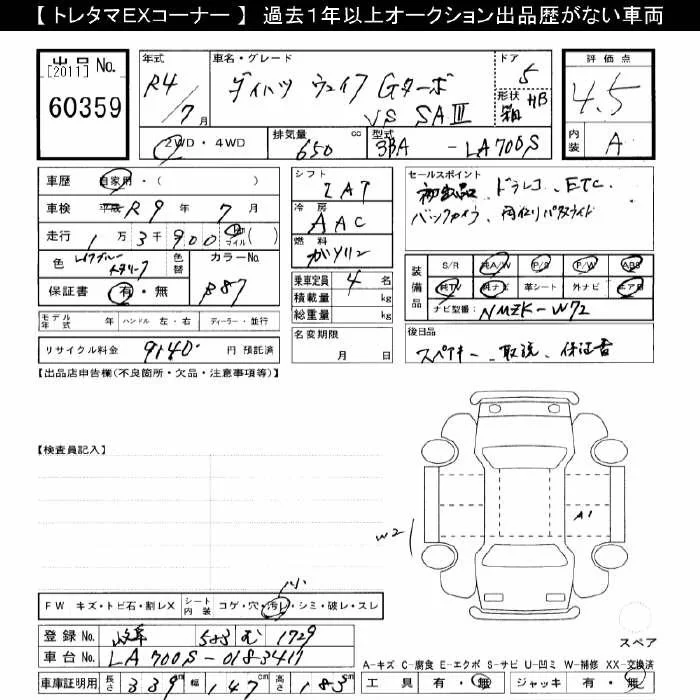 【 トレタマEXコーナー 】 過去1年以上オークション出品歴がない車両
出品No.
[2011]
60359
年式
R4/7月
車名・グレード
ダイハツ ウェイク Gターボ
VS SAⅢ
ドア
5
形状
箱 HB
評価点
4.5
内装
A
2WD・4WD
排気量
650 cc
型式
3BA - LA700S
車歴 自家用・( )
車検 平成 R9年 7月
走行 1万3千900 Km マイル ( )
色
色替
カラーNo.
B87
保証書 有・無
シフト
IAT
冷房
AAC
燃料
ガソリン
乗車定員 4 名
積載量 kg
総重量 kg
セールスポイント
初出品、ドラレコ、ETC、
装備品
S/R 純A/W P/S P/W ABS
純TV 純ナビ 革シート 外ナビ エアB
ナビ型番: NMZK-W72
モデル年式 年 ハンドル 左・右 ディーラー・並行
リサイクル料金 9140 円 預託済
名変期限
月 日
後日品
スペアキー、取説、保証書
【出品店申告欄(不良箇所・欠品・注意事項等)】
【検査員記入】
W2
A1
FW キズ・トビ石・割レX シート内装 コゲ・穴・汚レ・シミ・破レ・スレ
小
スペア
登録No. 岐阜 583 む 1729
車台No. LA700S-0183411
車庫証明用 長さ 339cm 幅 147cm 高さ 183cm
A-キズ C-腐食 E-エクボ S-サビ U-凹ミ W-補修 XX-交換済
工具 有・無 ジャッキ 有・無